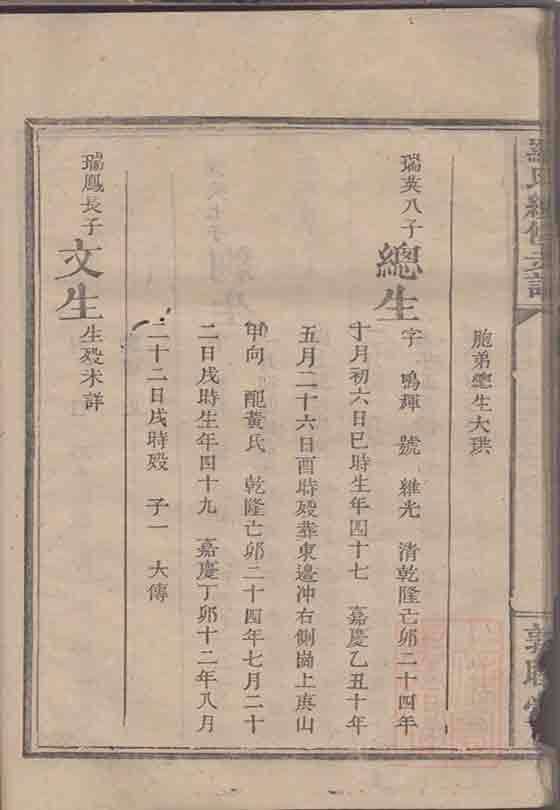 氏續修支譜
胞弟總生大珙
瑞英八子
總生
字 鳴輝 號 維光 清乾隆亡卯二十四年
十月初六日巳時生年四十七 嘉慶乙丑十年
五月二十六日酉時殁葬東邊冲右側崗上庚山
甲向 配黃氏 乾隆亡卯二十四年七月二十
二日戌時生年四十九 嘉慶丁卯十二年八月
二十二日戌時殁 子一 大傳
瑞鳳長子
文生
生殁未詳